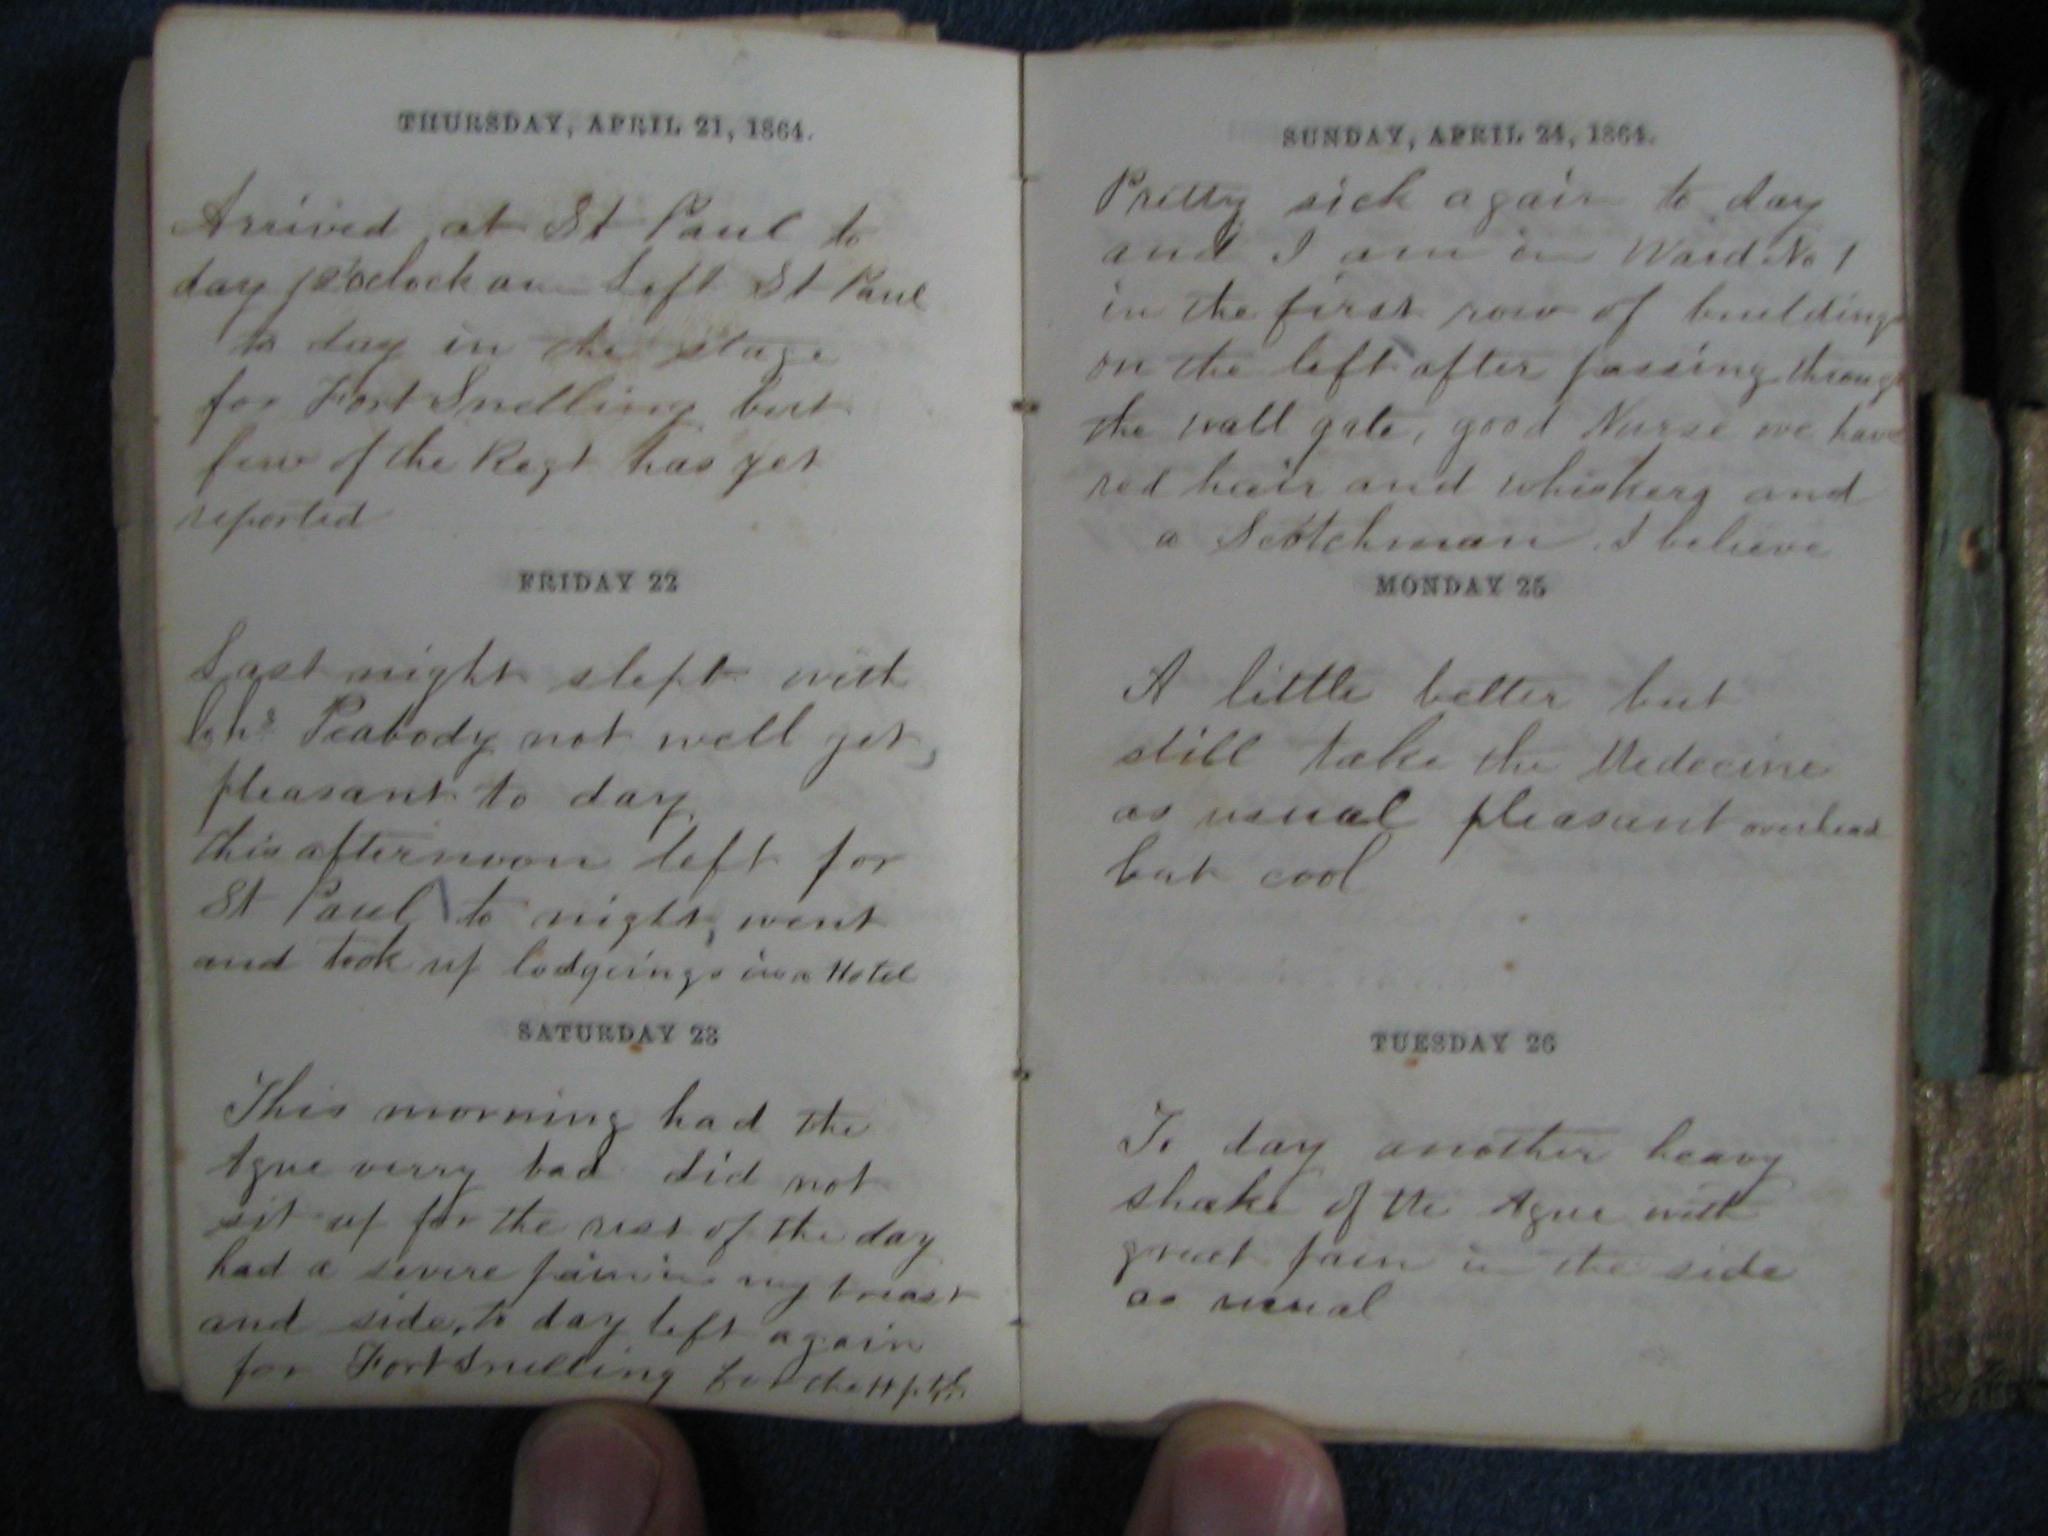 THURSDAY, APRIL 21, 1864.
Arrived at St Paul to
day 12 oclock am Left St Paul
to day in the stage
for Fort Snelling but
few of the Regt has yet
reported
FRIDAY 22
Last night slept with
Chs Peabody not well yet,
pleasant to day
this afternoon left for
St Paul to night, went
and took up lodgeings in a Hotel
SATURDAY 23
This morning had the
Ague verry bad did not
sit up for the rest of the day
had a severe pain in my breast
and side, to day left again
for Fort Snelling for the
SUNDAY, APRIL 24, 1864.
Pretty sick again to day
and I am in Ward No 1
in the first row of buildings
on the left after passing through
the wall gate, good Nurse we have
red hair and whiskers and
a Scotchman I believe
MONDAY 25
A little better but
still take the Medecine
as usual pleasant overhead
but cool
TUESDAY 26
To day another heavy
shake of the Ague with
great pain in the side
as usual